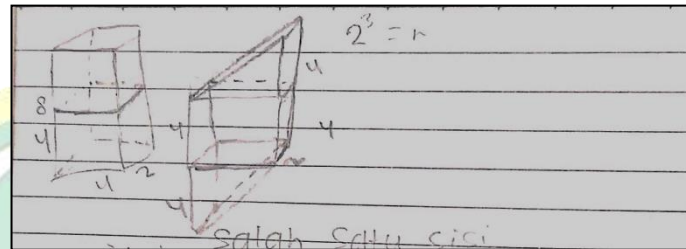 2³ = n
4
8
4
4
4
4 2
2
4
Salah Satu sisi